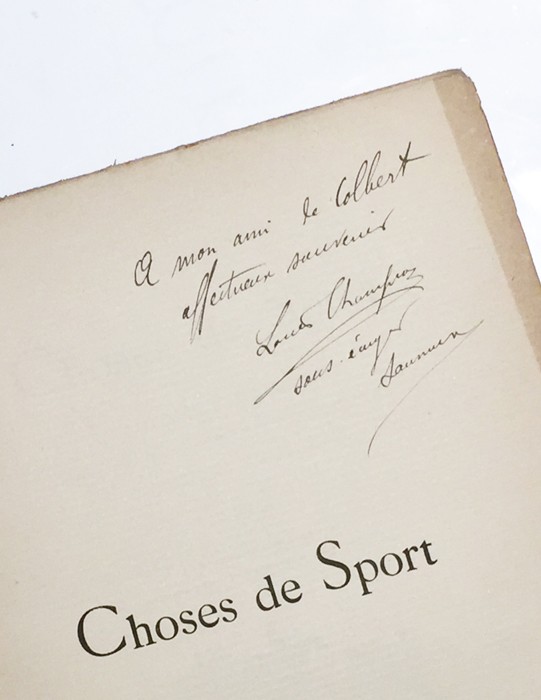 A mon ami de Colbert
affectueux souvenir
Louis Champion
sous-écuyer
Saumur
Choses de Sport